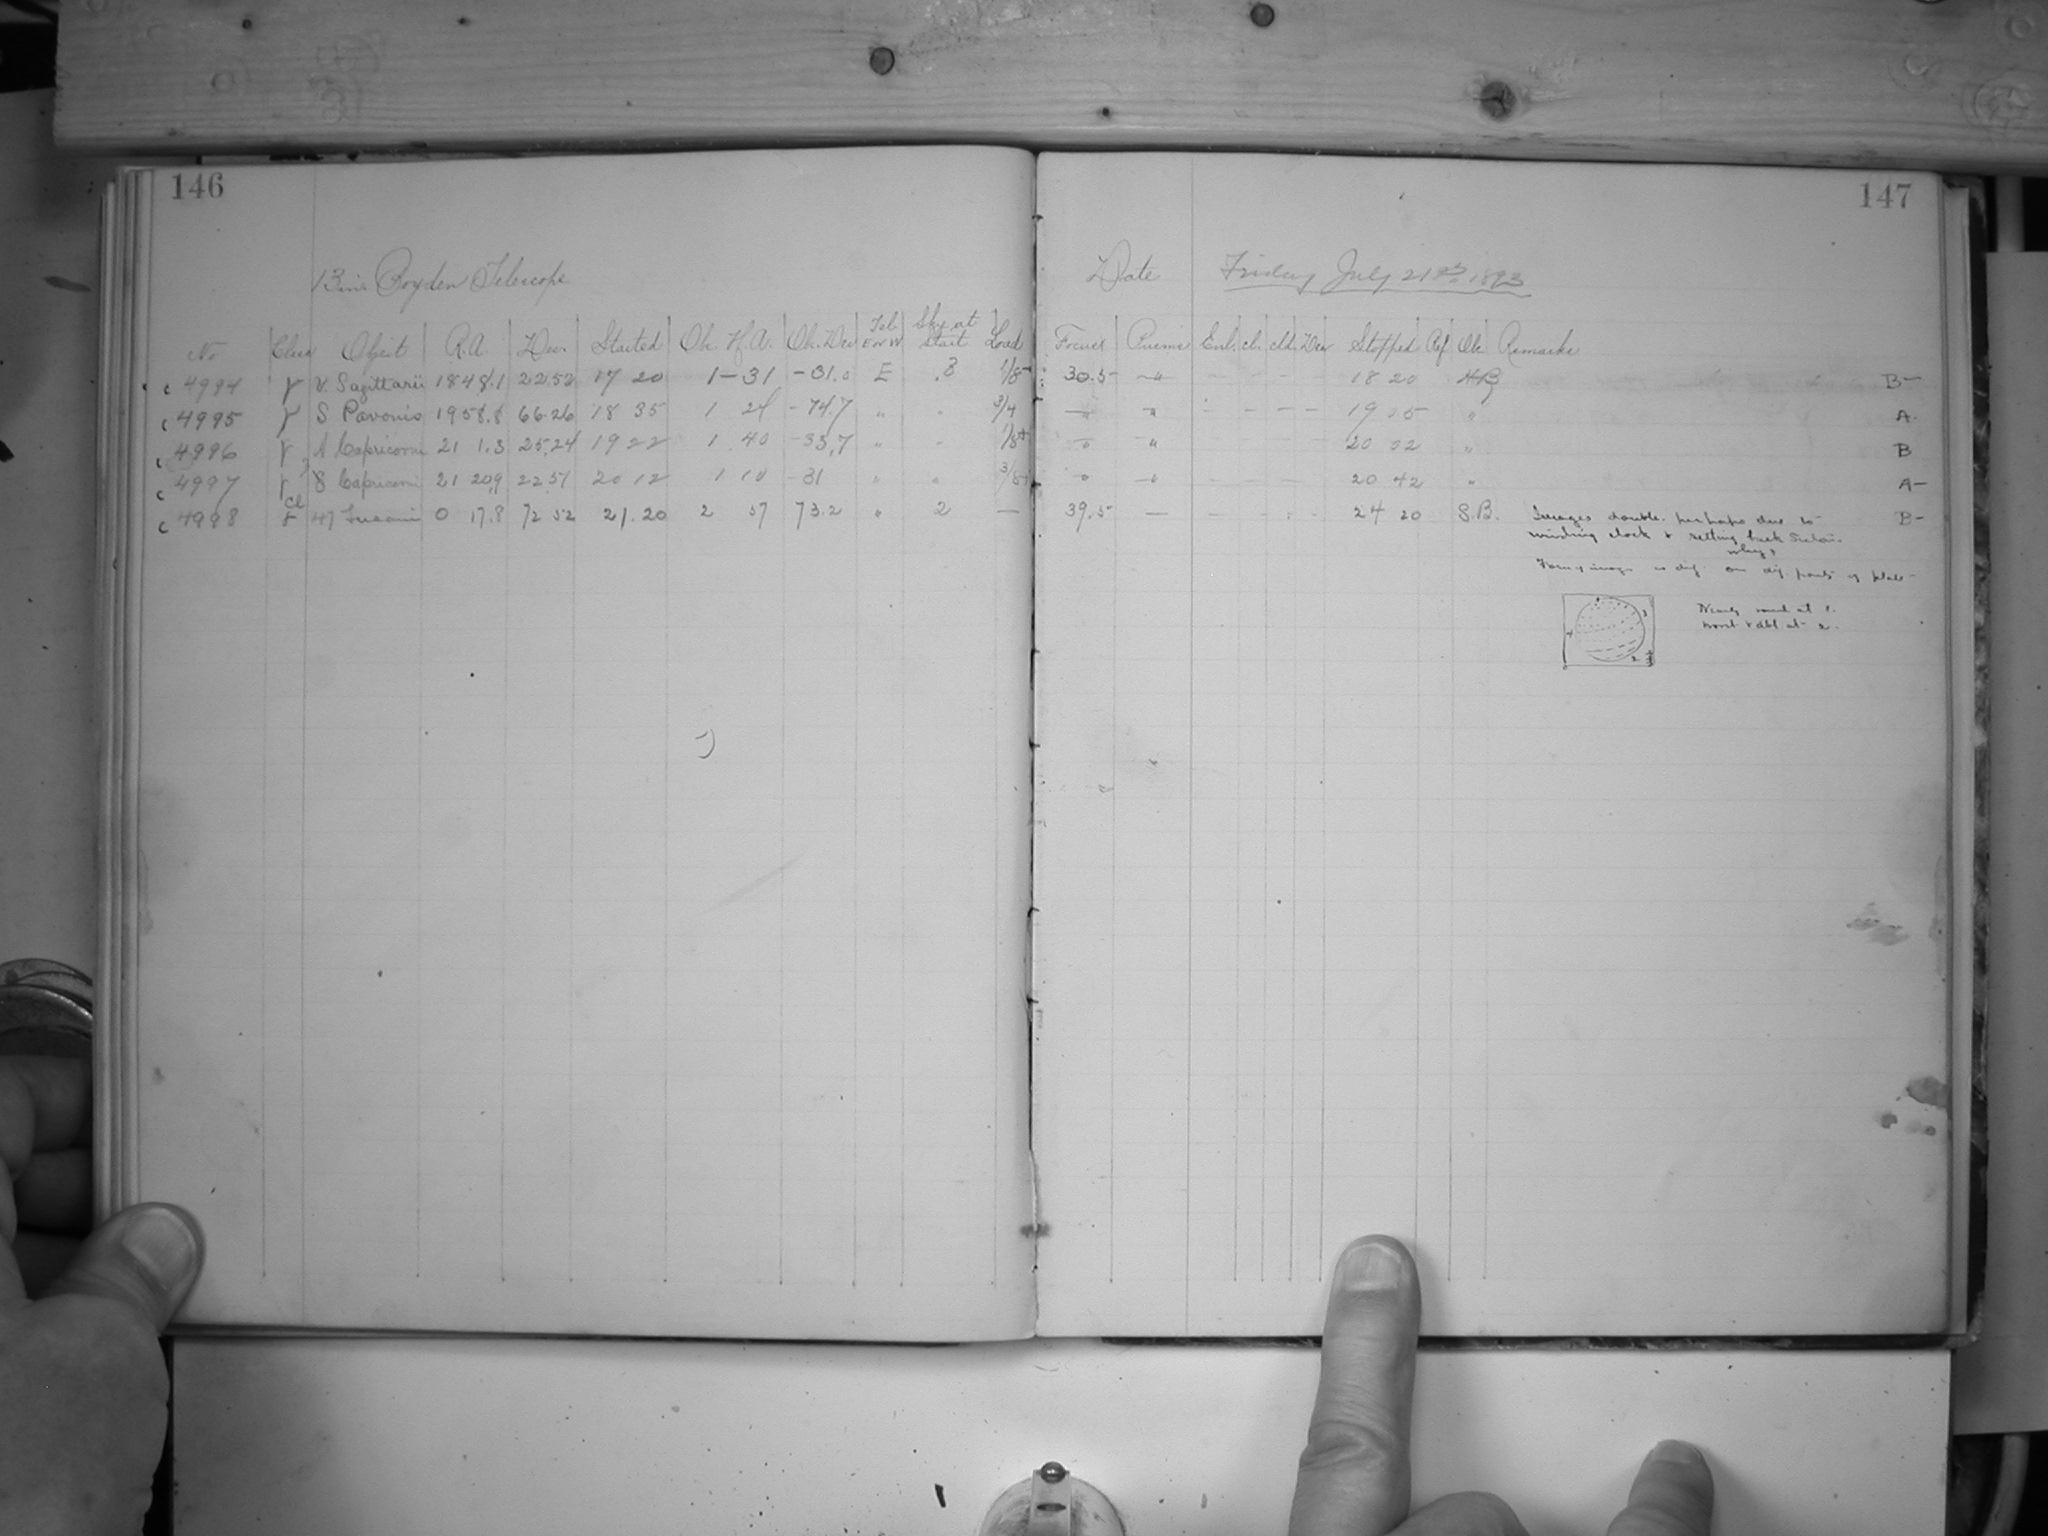 146
147
13 in. Boyden Telescope
Date Friday July 21st 1893
No Class Object R.A. Dec. Started Ob. H.A. Ob. Dec Tel. E or W Sky at start Load Focus Prisms Enl. cl. cld. Dev Stopped Ref Ob Remarks
4994 γ V. Sagittarii 18 48.1 22.52 17 20 1-31 -31.0 E 3 30.5 " 18 20 B-
4995 γ S Pavonis 19 58.8 66.26 18 35 1 24 -74.7 " " 3/4 " " 19 05 " A.
4996 γ Capricorni 21 1.3 25.24 19 22 1 40 -33.7 " " " " 20 02 " B
4997 γ Capricorni 21 20.9 22.51 20 12 1 10 -31 " " " " 20 42 " A-
4998 cl 47 0 17.8 72 52 21.20 2 57 73.2 " 2 — 39.5 — 24 20 S.B. Images double. perhaps due to B-
winding clock & setting back
why?
on dif. parts of plate
Nearly round at 1.
worst & dbl. at 2.
3
4
2